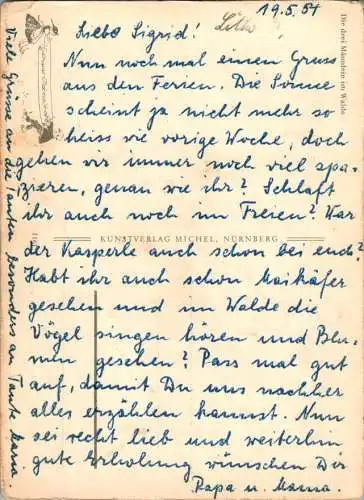 19.5.54
Liebe Sigrid!
Nun noch mal einen Gruss
aus den Ferien. Die Sonne
scheint ja nicht mehr so
heiss wie vorige Woche, doch
gehen wir immer noch viel spa-
zieren, genau wie ihr? Schlaft
ihr auch noch im Freien? War
der Kasperle auch schon bei euch?
Habt ihr auch schon Maikäfer
gesehen und im Walde die
Vögel singen hören und Blu-
men gesehen? Pass mal gut
auf, damit Du uns nachher
alles erzählen kannst. Nun
sei recht lieb und weiterhin
gute Erholung wünschen Dir
Papa u. Mama.
Viele Grüsse an die Tanten besonders an Tante Maria
Die drei Männlein im Walde
KUNSTVERLAG MICHEL, NÜRNBERG